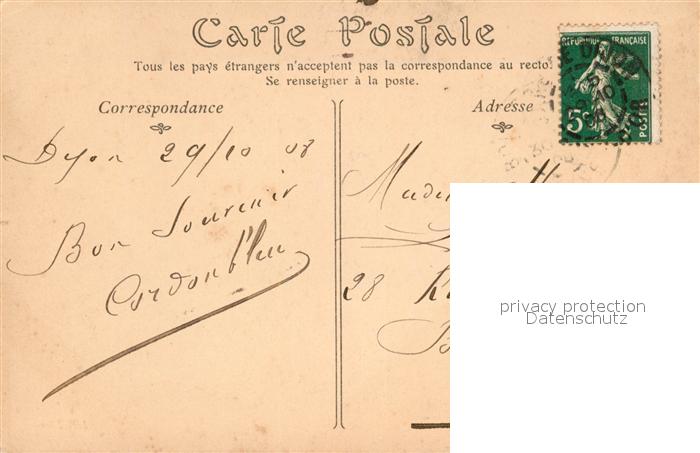 Carte Postale
Tous les pays étrangers n'acceptent pas la correspondance au recto.
Se renseigner à la poste.
Correspondance
Adresse
RÉPUBLIQUE FRANÇAISE
5
POSTES
Dijon 29/10 08
Bon Souvenir
Cordonbleu
28
privacy protection
Datenschutz